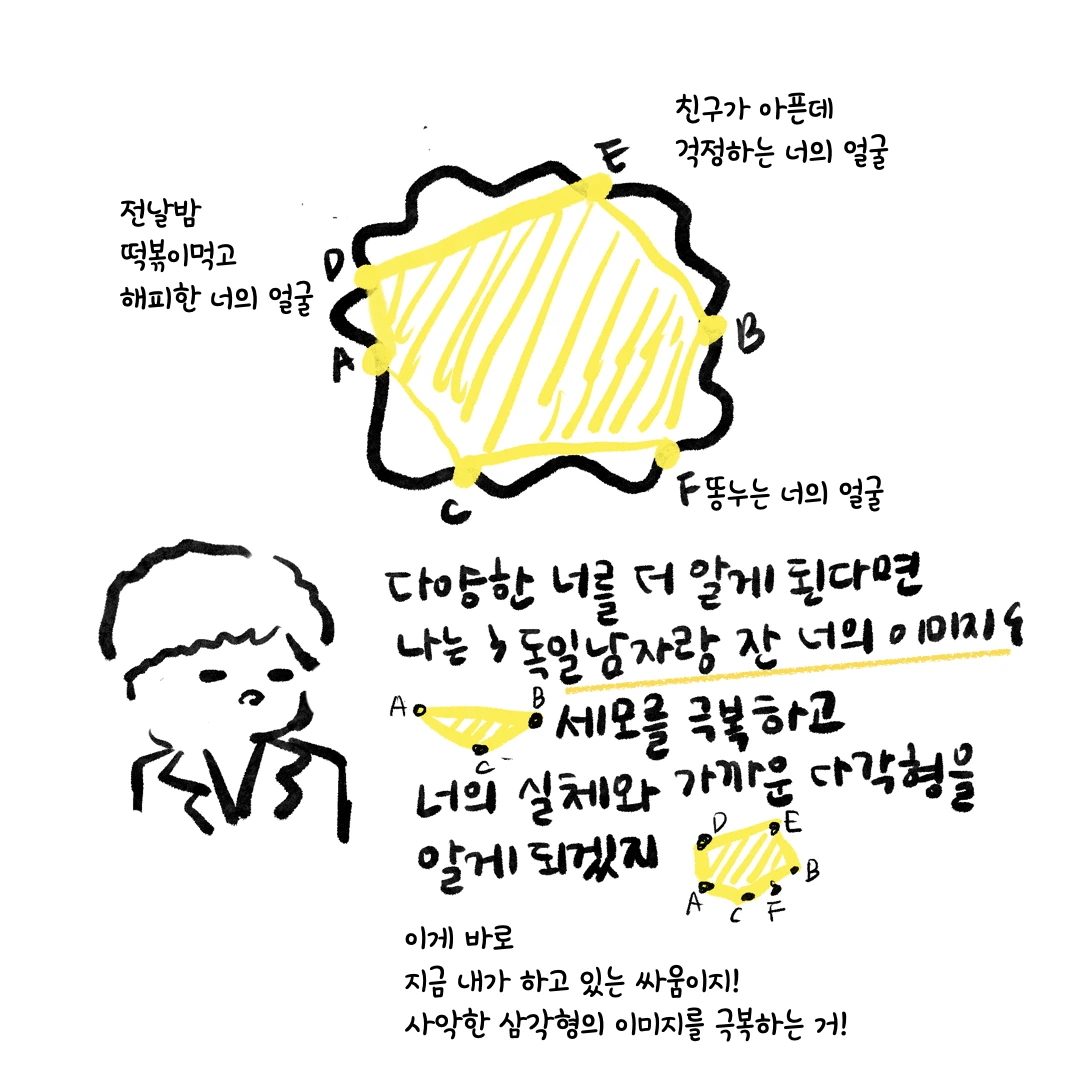 친구가 아픈데
걱정하는 너의 얼굴
E
전날밤
떡볶이먹고
해피한 너의 얼굴
D
A
B
C
F 똥누는 너의 얼굴
다양한 너를 더 알게 된다면
나는 독일남자랑 잔 너의 이미지
A B C 세모를 극복하고
너의 실체와 가까운 다각형을
알게 되겠지
D E
A C F B
이게 바로
지금 내가 하고 있는 싸움이지!
사악한 삼각형의 이미지를 극복하는 거!